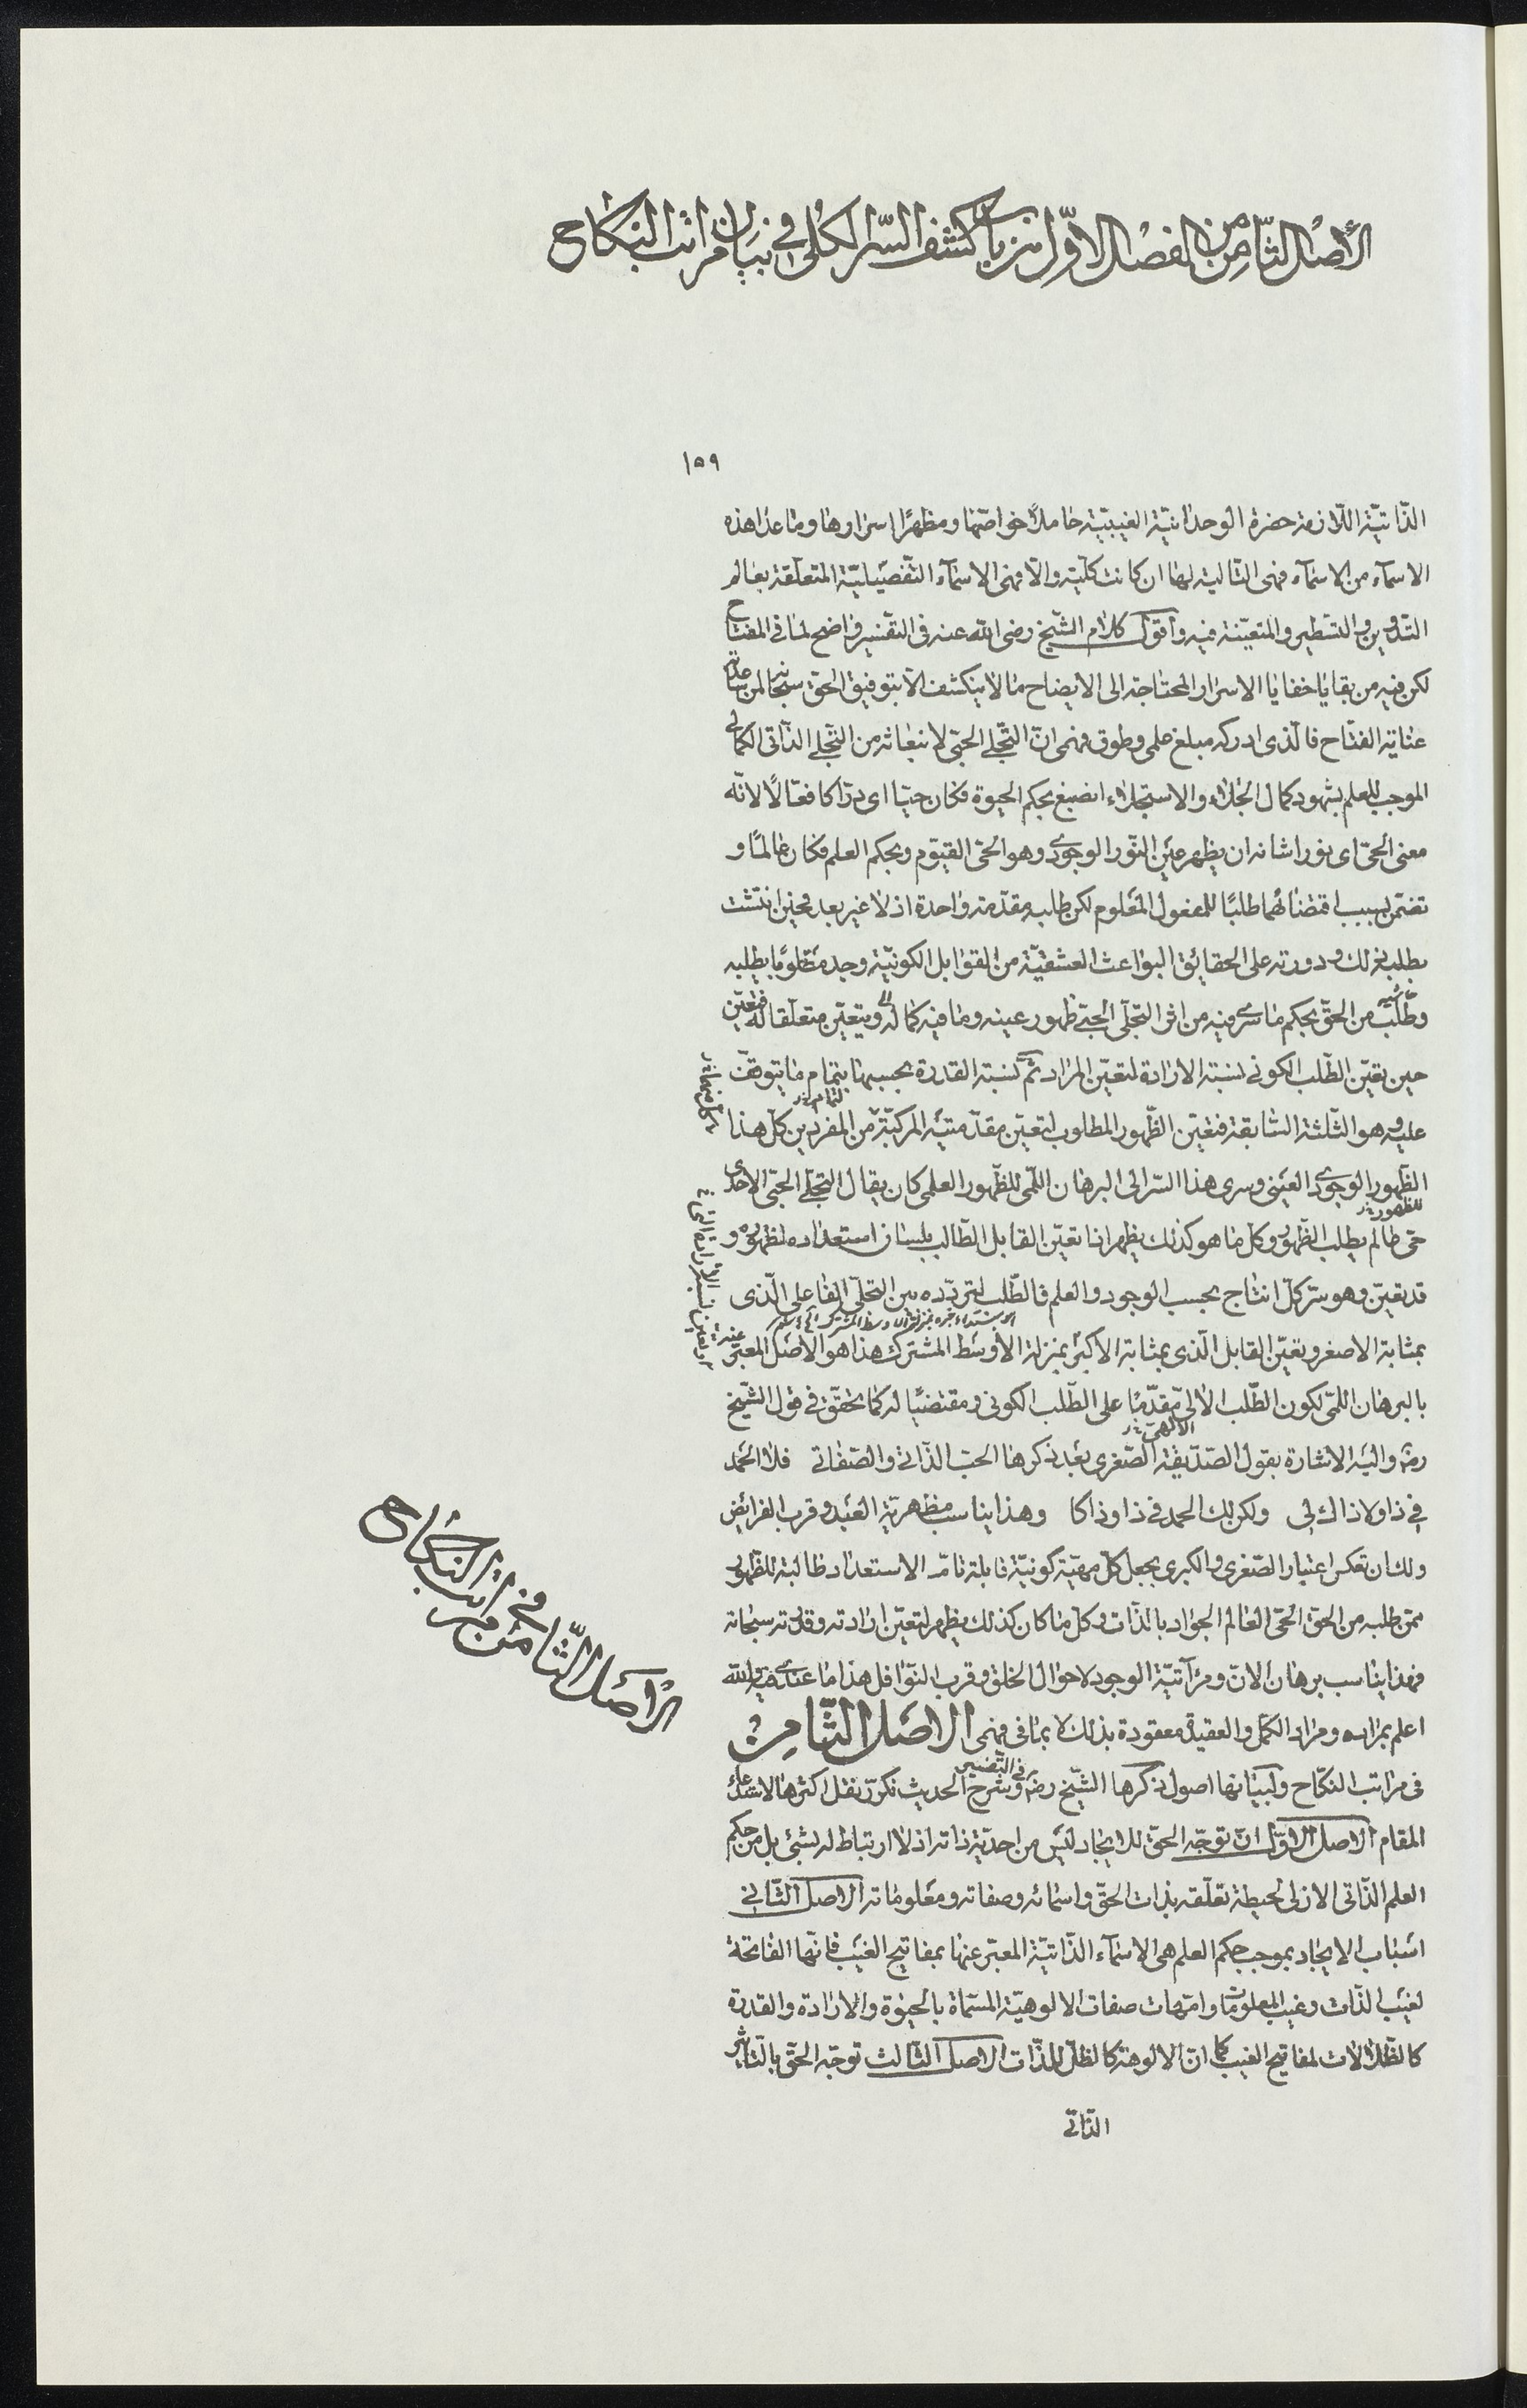 الأصل الثامن من الفصل الاوّل من باب كشف السّر الكلى فى بيان مراتب النكاح
١٥٩
الذّاتيّة اللّازمة حضرة الوحدانيّة الغيبيّة حاملاً خواصّها ومظهرًا اسرارها وما عدا هذه
الاسمآء من الاسمآء فهى التّالية لها ان كانت كلّية والّا فهى الاسمآء التّفصيليّة المتعلّقة بعالم
التّدوين والتّسطير والمتعيّنة فيه وأقول كلام الشّيخ رضى الله عنه فى التفسير واضح لما فى المفتاح
لكن فيه من بقايا خفايا الاسرار المحتاجة الى الايضاح ما لا ينكشف الّا بتوفيق الحق سبحانه لمن ساعدته
عناية الفتّاح فالّذى ادركه مبلغ علمى وطوق فهمى انّ التّجلّى الحبّى لانبعاثه من التّجلّى الذّاتى الكمالى
الموجب للعلم بشهود كمال الجلاء والاستجلاء انصبغ بحكم الحيوة فكان حيّا اى درّاكا فعّالًا لانّه
معنى الحىّ اى نورا شانه ان يظهر عين النّور الوجودى وهو الحىّ القيّوم وبحكم العلم فكان عالمًا و
تضمّن بسبب اقتضائهما طلبًا للمفعول المعلوم لكن طلبه مقدّمة واحدة اذ لا غير بعد فحين انتشت
بطلبه ذلك ودورته على الحقايق البواعث العشقيّة من القوابل الكونيّة وجد مطلوبا يطلبه
وطلبت من الحقّ بحكم ما سرى فيه من اثر التجلّى الحبّى ظهور عينه وما فيه كماله ويتعيّن متعلّقا له فتعيّن
حين تعيّن الطّلب الكونى نسبة الارادة لتعيّن المراد ثمّ نسبة القدرة بحسبها بتمام ما يتوقف
عليه وهو الثّلثة السّابقة فتعيّن الظّهور المطلوب لتعيّن مقدّمتيه المركبّة من المفردين كلّ هذا
الظّهور الوجودى العينى وسرى هذا السّر الى البرهان اللّمى للظّهور العلمى كان يقال التجلّى الحبّى الاحدى
للظهور
حىّ عالم يطلب الظّهور وكلّ ما هو كذلك يظهر اذا تعيّن القابل الطّالب بلسان استعداده لظهوره و
قد تعيّن وهو سرّ كلّ انتاج بحسب الوجود والعلم فالطّلب لتردّده بين التجلّى الفاعلى الّذى
بمثابة الاصغر وتعيّن القابل الّذى بمثابة الاكبر بمنزلة الاوسط المشترك هذا هو الاصل المعبّر عنه
بالبرهان اللمّى لكون الطّلب الالى مقدّمًا على الطّلب الكونى ومقتضيًا له كما تحقّق فى قول الشّيخ
الالهى
رضه واليه الاشارة بقول الصّدّيقة الصّغرى بعد ذكرها الحبّ الذّاتى والصّفاتى فلا الحمد
فى ذا ولا ذاك لى ولكن لك الحمد فى ذا وذاكا وهذا يناسب مظهريّة العبد وقرب الفرائض
ولك ان تعكس اعتبار الصّغرى والكبرى بجعل كلّ مهيّة كونيّة قابلة تامّة الاستعداد طالبة للظّهور
ممّن طلبه من الحقّ الحىّ العالم الجواد بالذّات وكلّ ما كان كذلك يظهر لتعيّن ارادته وقدرته سبحانه
فهذا يناسب برهان الانّ ومرآتيّة الوجود لاحوال الخلق وقرب النّوافل هذا ما عندى فيه والله
اعلم بمراده ومراد الكمّل والعقيدة معقودة بذلك لا بما فى فهمى الاصل الثّامن
فى مراتب النّكاح ولبيانها اصول ذكرها الشّيخ رضه فى التّفسير وشرح الحديث نكرّر نقل اكثرها لاستدعاء
المقام الاصل الاوّل انّ توجّه الحقّ للايجاد ليس من احديّة ذاته اذ لا ارتباط له بشئ بل من حكم
العلم الذّاتى الازلى لحيطة تعلّقه بذات الحقّ واسمائه وصفاته ومعلوماته الاصل الثّانى
اسباب الايجاد بموجب حكم العلم هى الاسمآء الذّاتيّة المعبّر عنها بمفاتيح الغيب فانّها الفاتحة
لغيب الذّات وغيب المعلومات وامّهات صفات الالوهيّة المسمّاة بالحيوة والارادة والقدرة
كالظّلالات لمفاتيح الغيب كما انّ الالوهة كالظلّ للذّات الاصل الثّالث توجّه الحقّ بالتّاثير
الذّاتى
الاصل الثّامن فى مراتب النكاح